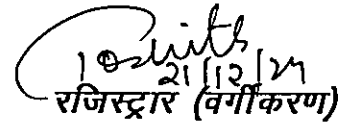 21/12/24
रजिस्ट्रार (वर्गीकरण)